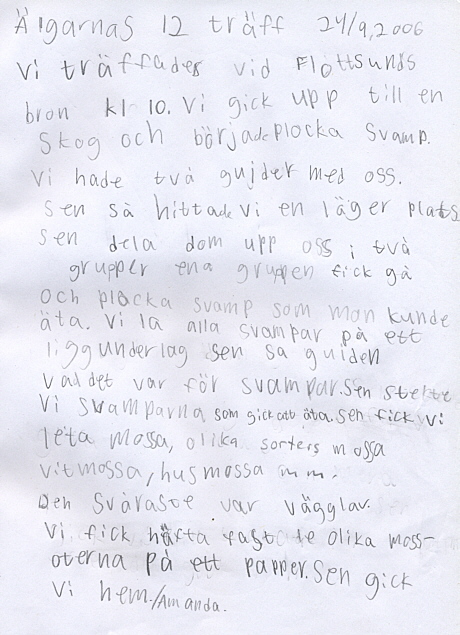 Älgarnas 12 träff 24/9,2006
Vi träffades vid Flottsunds
bron kl 10. Vi gick upp till en
skog och började plocka svamp.
Vi hade två gujder med oss.
Sen så hittade vi en läger plats
sen dela dom upp oss i två
grupper ena gruppen fick gå
och plocka svamp som man kunde
äta. Vi la alla svampar på ett
liggunderlag sen sa guiden
vad det var för svampar. Sen stekte
Vi svamparna som gick att äta. Sen fick vi
leta mossa, olika sorters mossa
vitmossa, husmossa m m.
Den svåraste var vägglav.
Vi fick häfta fast de olika moss-
oterna på ett papper. Sen gick
Vi hem. /Amanda.